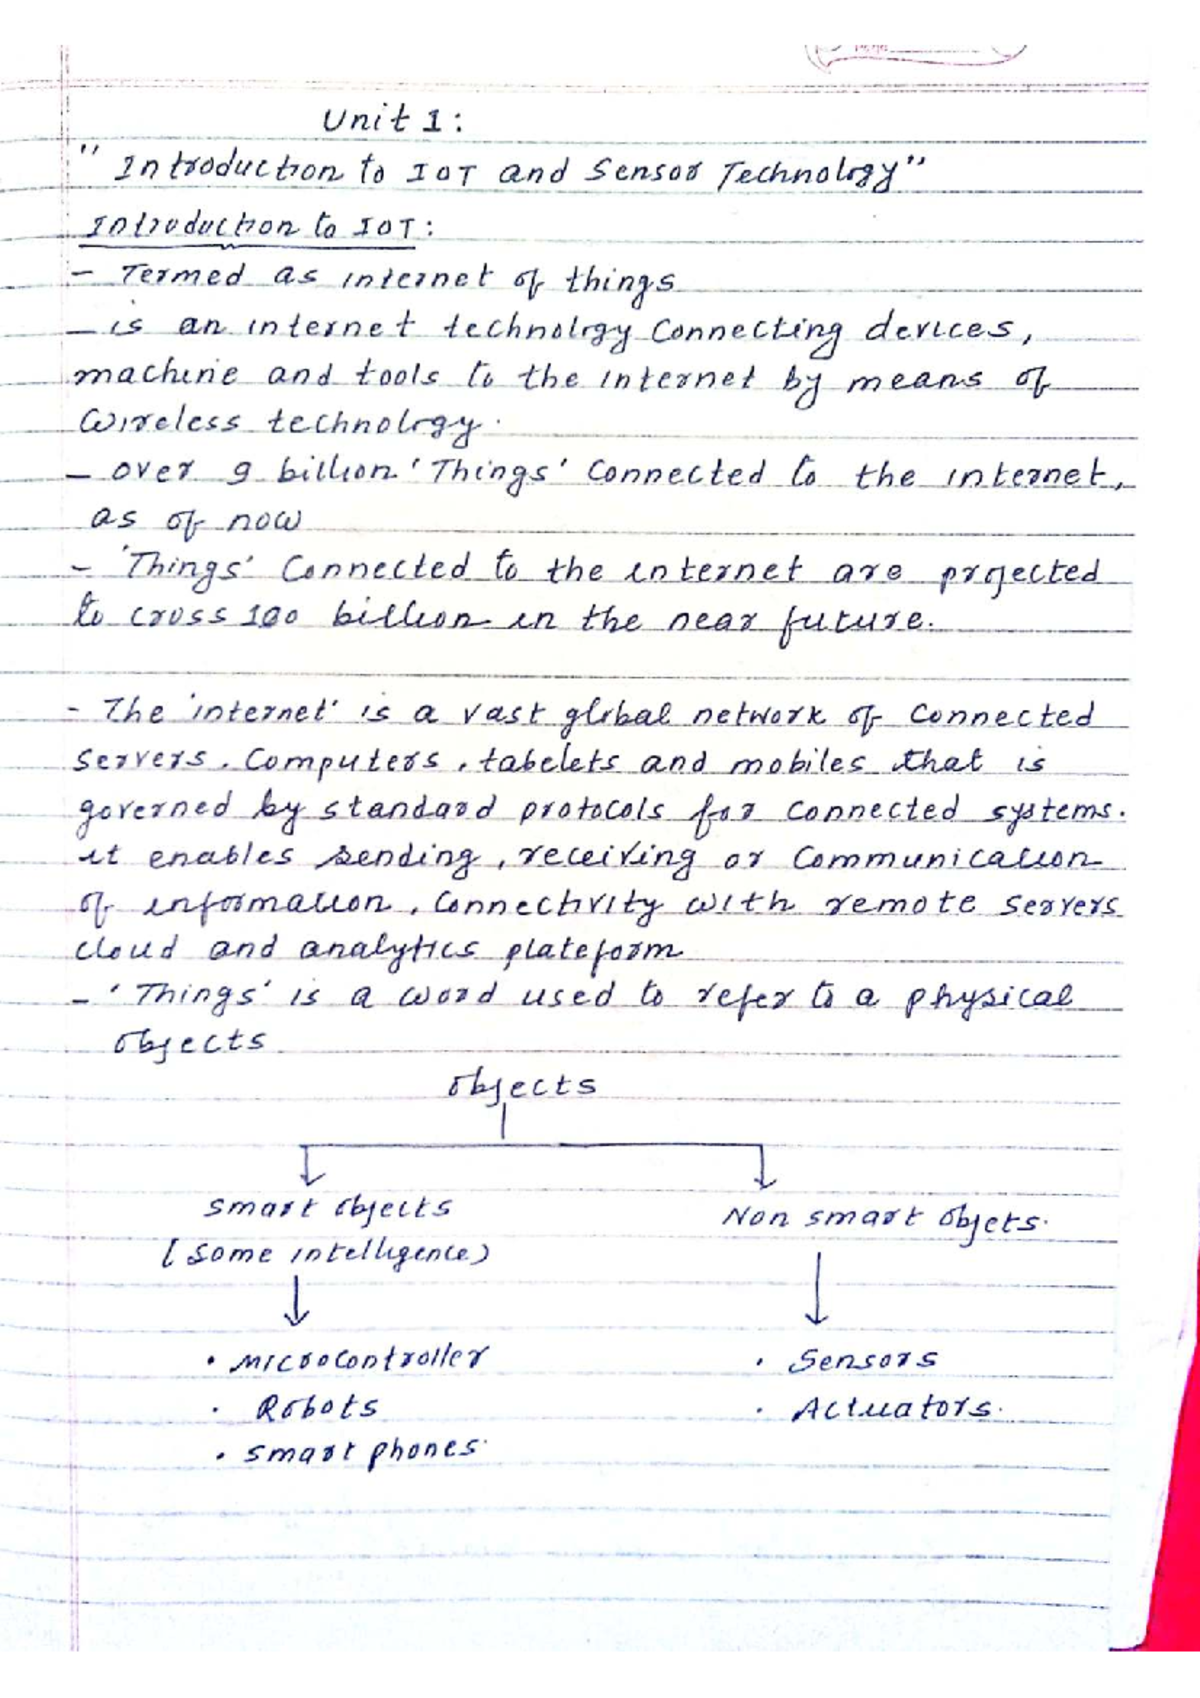 Unit 1:
" Introduction to IOT and Sensor Technology"
Introduction to IOT:
- Termed as internet of things
- is an internet technology Connecting devices,
machine and tools to the internet by means of
Wireless technology.
- over 9 billion 'Things' Connected to the internet,
as of now
- 'Things' Connected to the internet are projected
to cross 100 billion in the near future.
- The 'internet' is a vast global network of Connected
servers, Computers, tabelets and mobiles that is
governed by standard protocols for connected systems.
it enables sending, receiving or Communication
of information, Connectivity with remote servers
cloud and analytics plateform
- 'Things' is a word used to refer to a physical
objects
Objects
Smart objects
Non smart objets.
(Some intelligence)
• Microcontroller
• Sensors
• Robots
• Actuators.
• Smart phones.